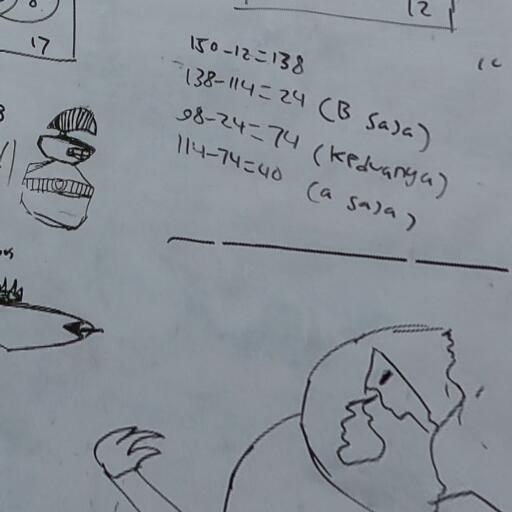 12
17
150-12=138
138-114=24 (B saja)
98-24=74 (keduanya)
114-74=40 (a saja)